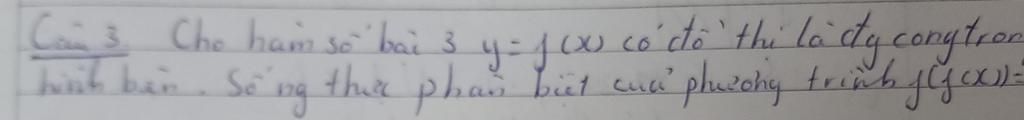 Câu 3 Cho hàm số bài 3 y = f(x) có đồ thị là đg cong tron
hình bên. Số ng thực phân biệt của phương trình f(f(x)) =